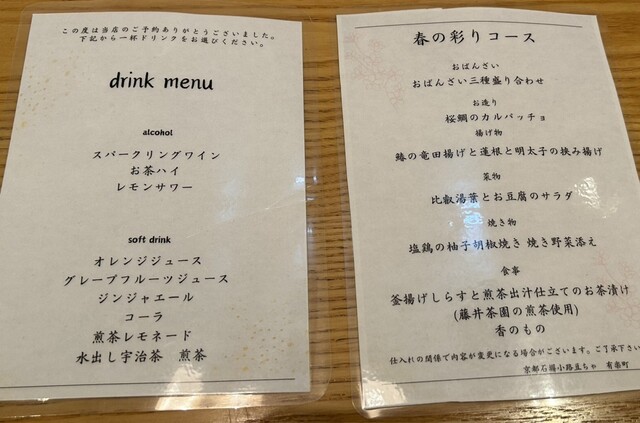 この度は当店のご予約ありがとうございました。
下記から一杯ドリンクをお選びください。
drink menu
alcohol
スパークリングワイン
お茶ハイ
レモンサワー
soft drink
オレンジジュース
グレープフルーツジュース
ジンジャエール
コーラ
煎茶レモネード
水出し宇治茶 煎茶
春の彩りコース
おばんざい
おばんざい三種盛り合わせ
お造り
桜鯛のカルパッチョ
揚げ物
鰆の竜田揚げと蓮根と明太子の挟み揚げ
菜物
比叡湯葉とお豆腐のサラダ
焼き物
塩鶏の柚子胡椒焼き 焼き野菜添え
食事
釜揚げしらすと煎茶出汁仕立てのお茶漬け
(藤井茶園の煎茶使用)
香のもの
仕入れの関係で内容が変更になる場合がございます。ご了承下さい
京都石塀小路豆ちゃ 有楽町